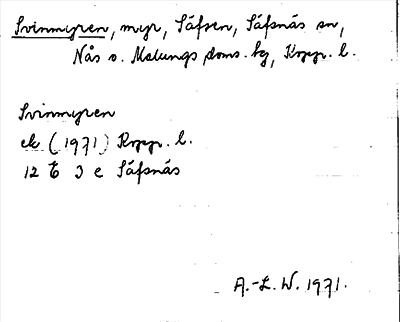 Svinmyren, myr, Säfsen, Säfsnäs sn,
Nås o. Malungs doms. hg, Kopp. l.
Svinmyren
ek (1971) Kopp. l.
12 E 3 e Säfsnäs
A.-L. W. 1971.